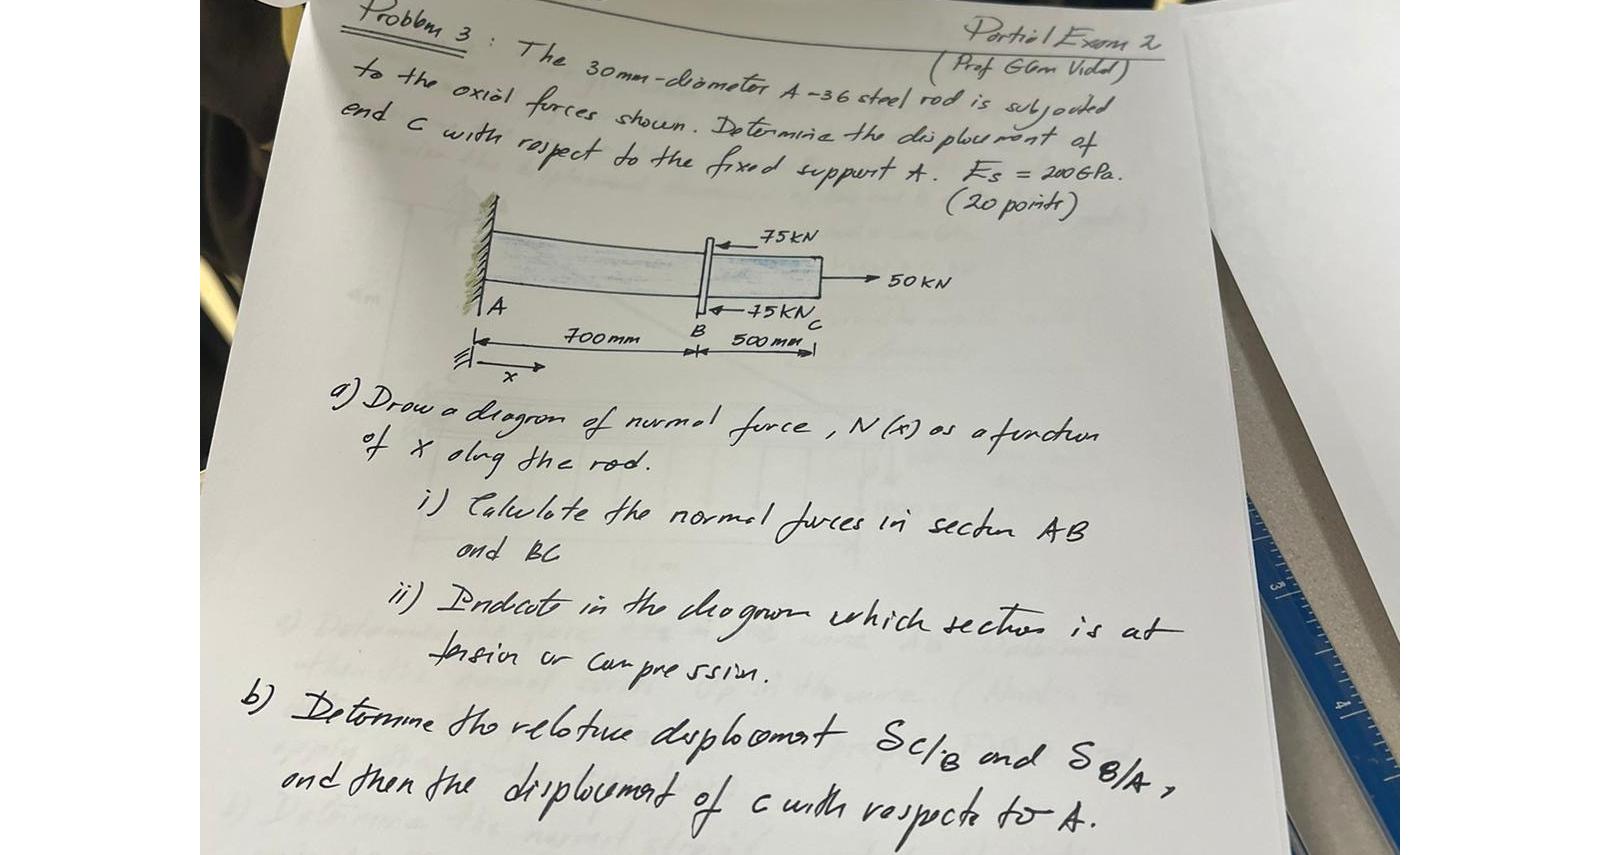 Partial Exam 2
(Prof Glen Vidal)
Problem 3 : The 30mm-diameter A-36 steel rod is subjected
to the axial forces shown. Determine the displacement of
end C with respect to the fixed support A. Es = 200GPa.
(20 points)
75KN
50KN
75KN
A
B
C
700mm
500mm
x
a) Draw a diagram of normal force, N(x) as a function
of x along the rod.
i) Calculate the normal forces in section AB
and BC
ii) Indicate in the diagram which section is at
tension or compression.
b) Determine the relative displacement δC/B and δB/A,
and then the displacement of C with respect to A.
3
4